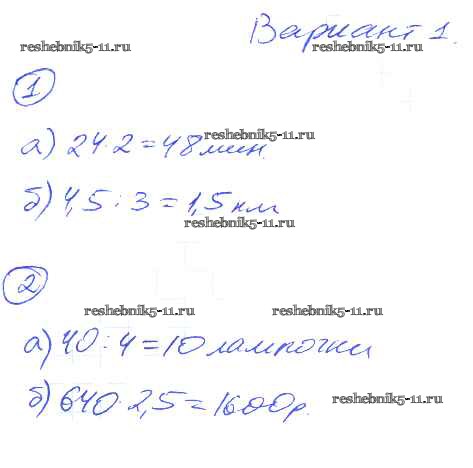 Вариант 1.
reshebnik5-11.ru reshebnik5-11.ru
1
reshebnik5-11.ru
а) 24·2=48мин.
б) 4,5:3=1,5 км
reshebnik5-11.ru
2
reshebnik5-11.ru reshebnik5-11.ru
а) 40:4=10 лампочки
б) 640·2,5=1600р.
reshebnik5-11.ru